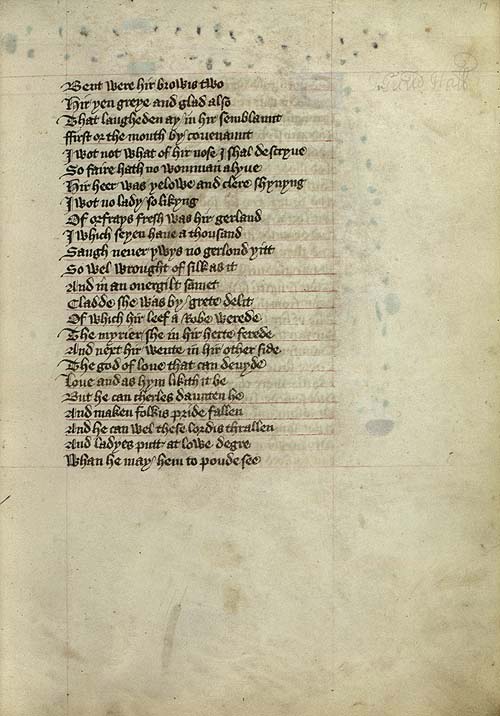 Bent were hir browis two
Hir yen greye and glad also
That laugheden ay in hir semblaunt
ffirst or the mouth by couenaunt
I wot not what of hir nose I shal descryue
So faire hath no womman alyue
Hir heer was yelowe and clere shynyng
I wot no lady so likyng
Of orfrays fresh was hir gerland
I which seyen haue a thousand
Saugh neuer ywys no gerlond yitt
So wel wrought of silk as it
And in an ouergilt samet
Cladde she was by grete delit
Of which hir leef a Robe werede
The myrier she in hir herte ferede
And next hir wente in hir other side
The god of loue that can deuyde
Loue and as hym likith it be
But he can cherles daunten he
And maken folkis pride fallen
And he can wel these lordis thrallen
And ladyes putt at lowe degre
Whan he may hem to proude see